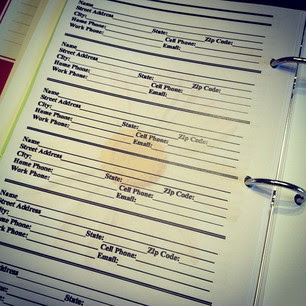 Name
Street Address
City: State: Zip Code:
Home Phone: Cell Phone:
Work Phone: Email:
Name
Street Address
City: State: Zip Code:
Home Phone: Cell Phone:
Work Phone: Email:
Name
Street Address
City: State: Zip Code:
Home Phone: Cell Phone:
Work Phone: Email:
Name
Street Address
City: State: Zip Code:
Home Phone: Cell Phone:
Work Phone: Email:
Name
Street Address
City: State: Zip Code:
Home Phone: Cell Phone:
Work Phone: Email:
Name